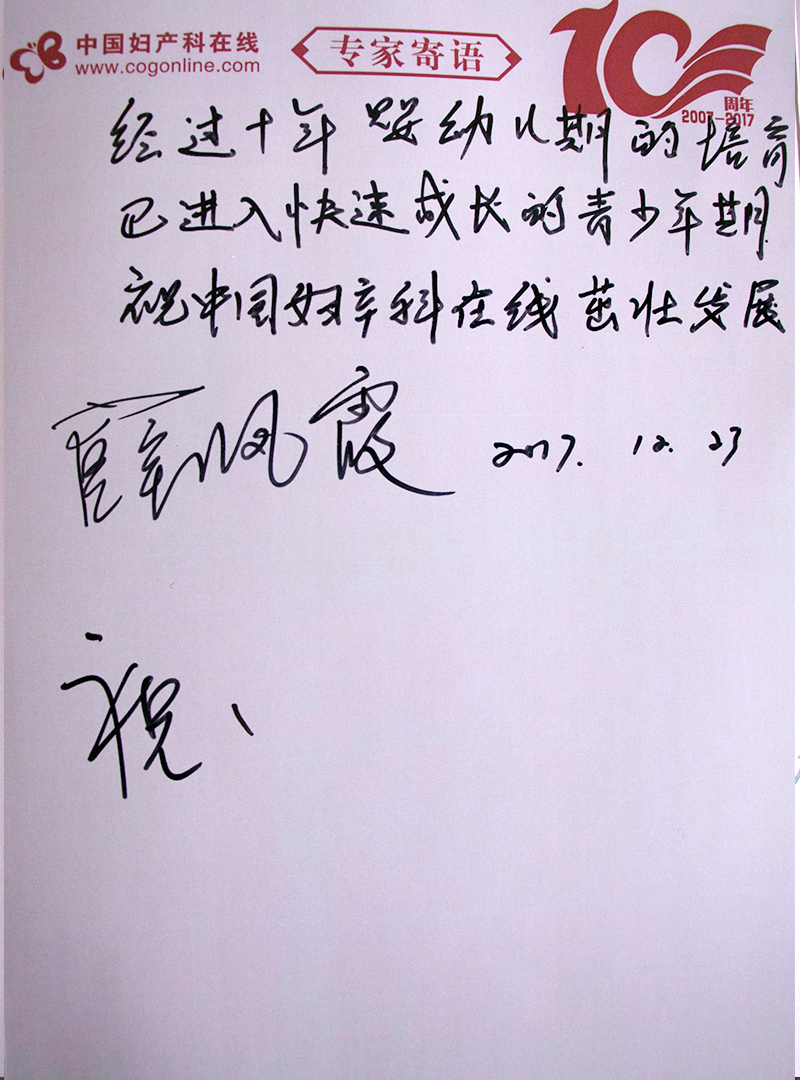 中国妇产科在线
www.cogonline.com
专家寄语
10
周年
2007-2017
经过十年婴幼儿期的培育
已进入快速成长的青少年期
祝中国妇产科在线茁壮发展
薛凤霞 2017. 12. 23
祝、